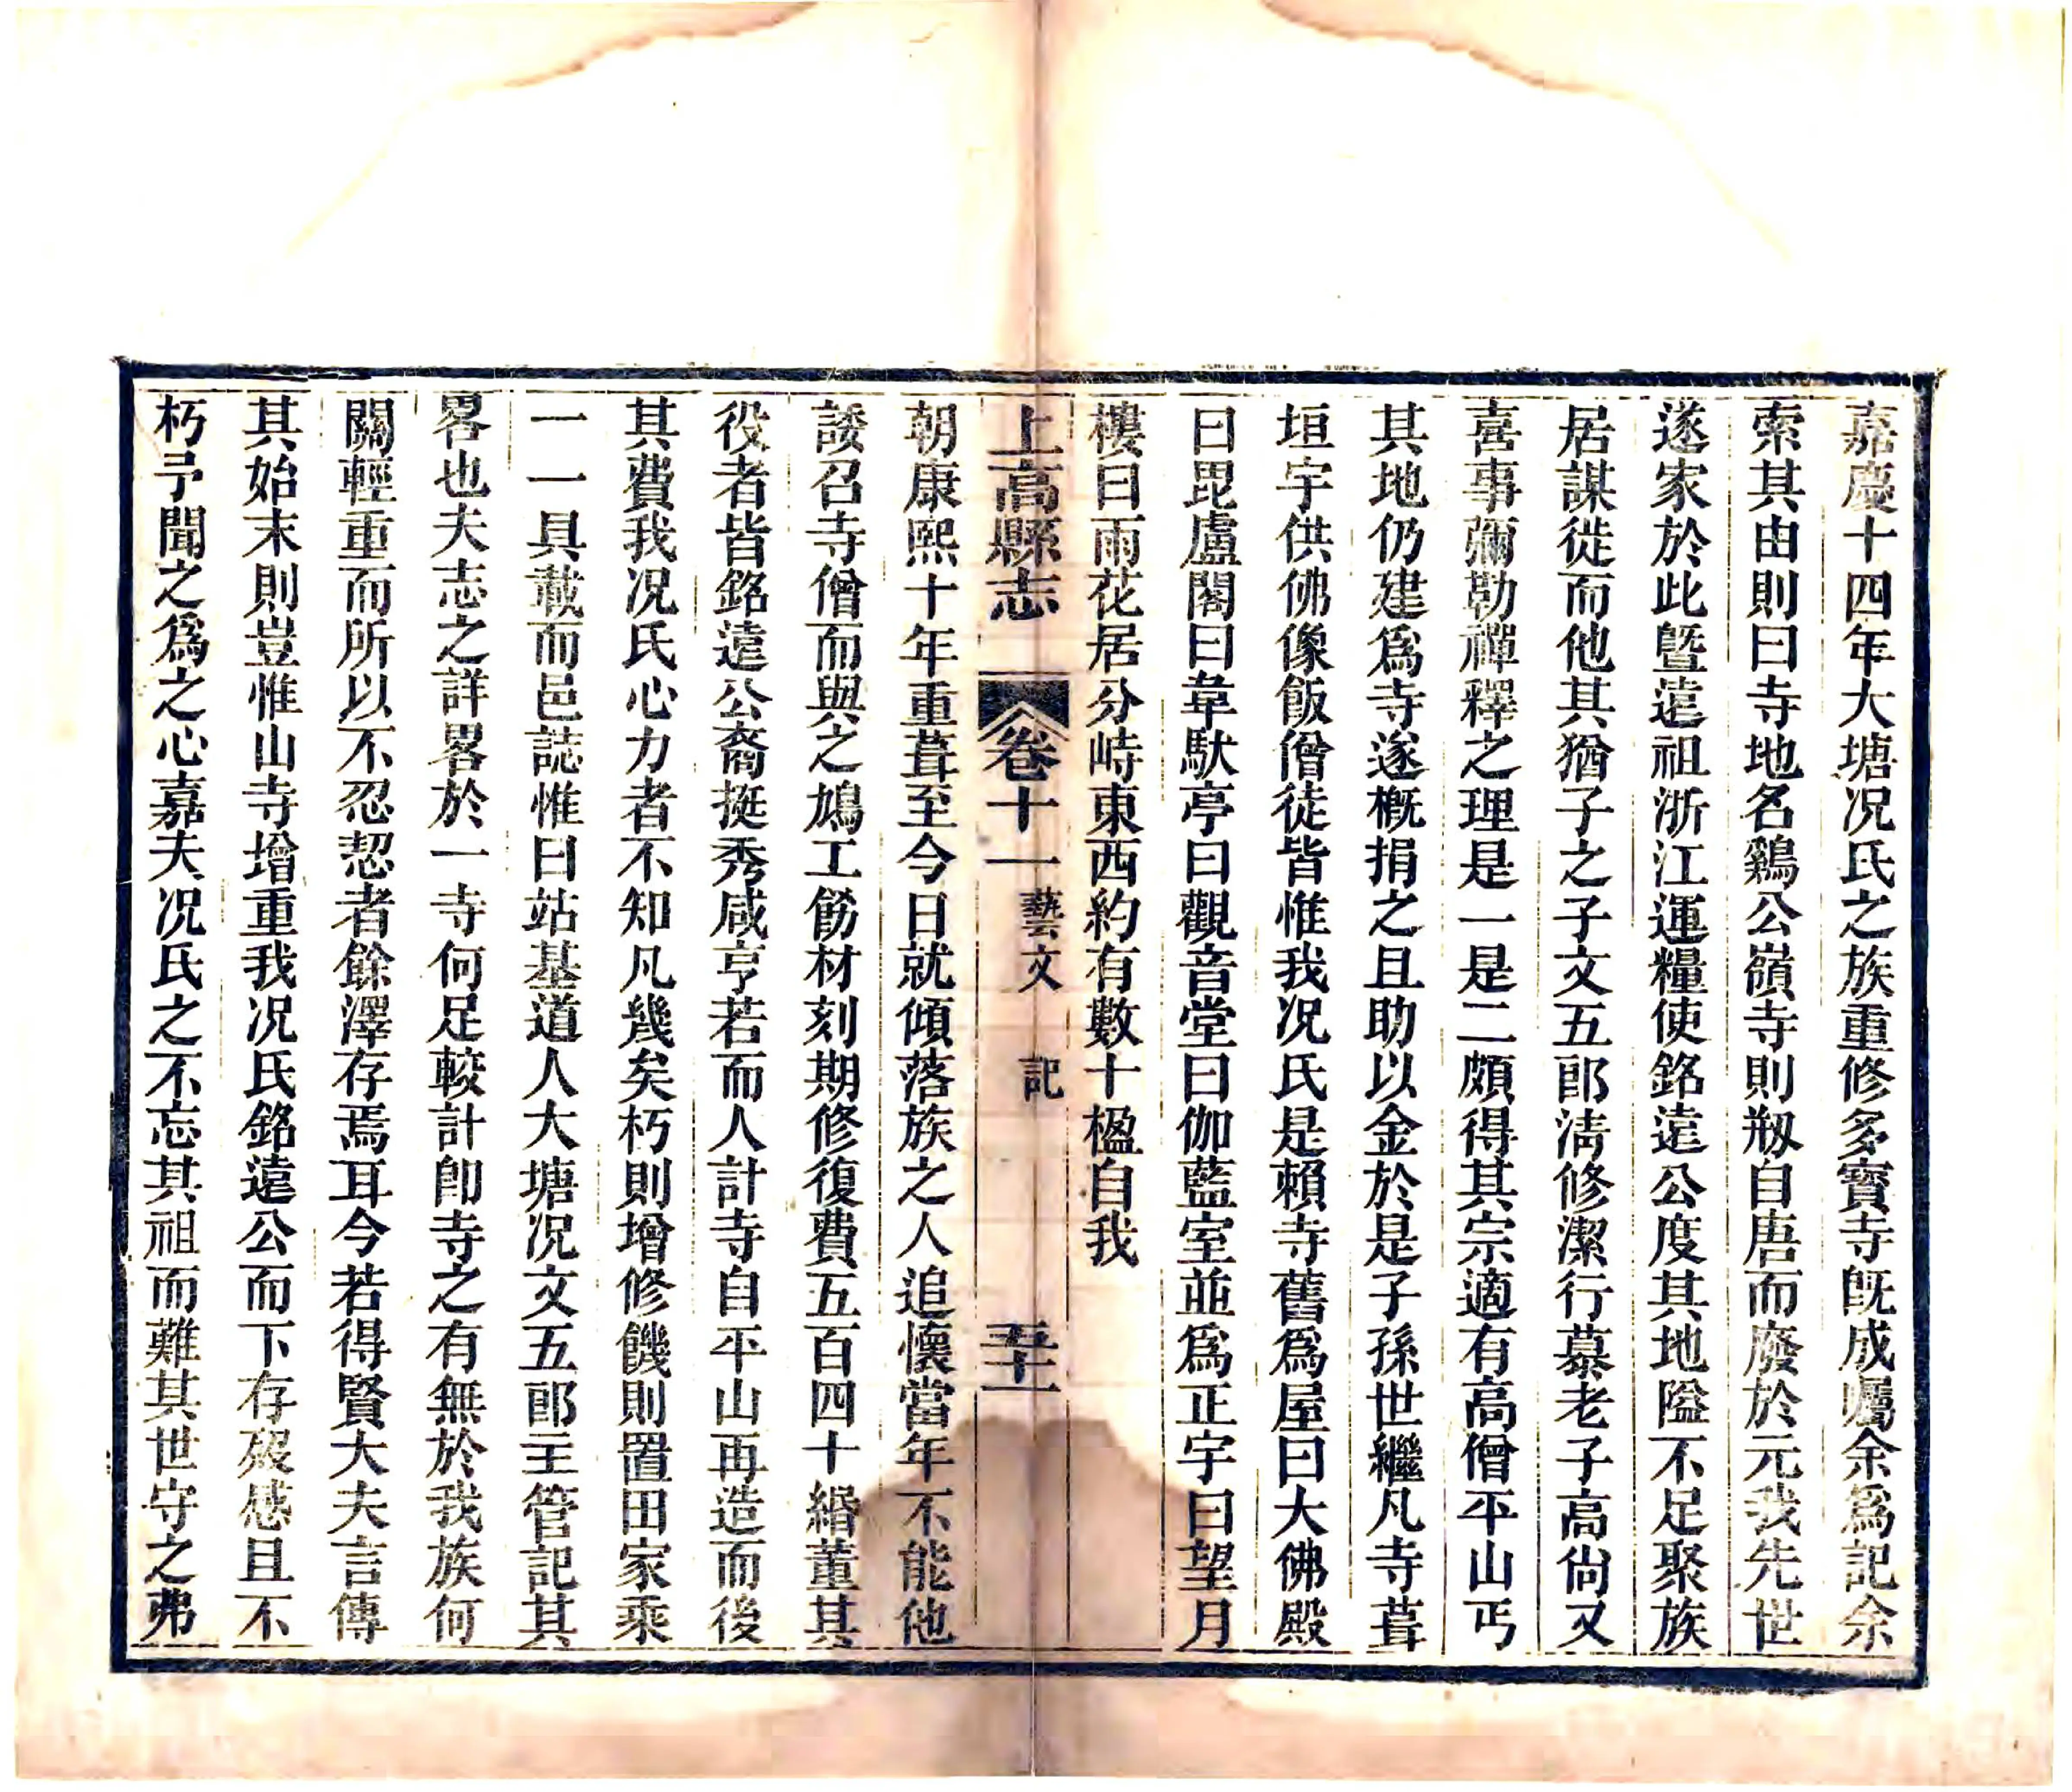 嘉慶十四年大塘况氏之族重修多寶寺既成囑余爲記余
索其由則曰寺地名鷄公嶺寺則剏自唐而廢於元我先世
遂家於此曁遠祖浙江運糧使銘遠公度其地隘不足聚族
居謀徙而他其猶子之子文五郎淸修潔行慕老子高尙又
喜事彌勒禪釋之理是一是二頗得其宗適有高僧平山丐
其地仍建爲寺遂概捐之且助以金於是子孫世繼凡寺葺
垣宇供佛像飯僧徒皆惟我况氏是賴寺舊爲屋曰大佛殿
曰毘盧閣曰韋馱亭曰觀音堂曰伽藍室並爲正宇曰望月
樓曰雨花居分峙東西約有數十楹自我
上高縣志 卷十一 藝文 記 五十一
朝康熙十年重葺至今日就傾落族之人追懷當年不能他
諉召寺僧而與之鳩工飭材刻期修復費五百四十緡董其
役者皆銘遠公裔挺秀咸亨若而人計寺自平山再造而後
其費我况氏心力者不知凡幾矣朽則增修饑則置田家乘
一一具載而邑誌惟曰站基道人大塘况文五郎主管記其
畧也夫志之詳畧於一寺何足較計卽寺之有無於我族何
關輕重而所以不忍恝者餘澤存焉耳今若得賢大夫言傳
其始末則豈惟山寺增重我况氏銘遠公而下存歿感且不
朽予聞之爲之心嘉夫况氏之不忘其祖而難其世守之弗